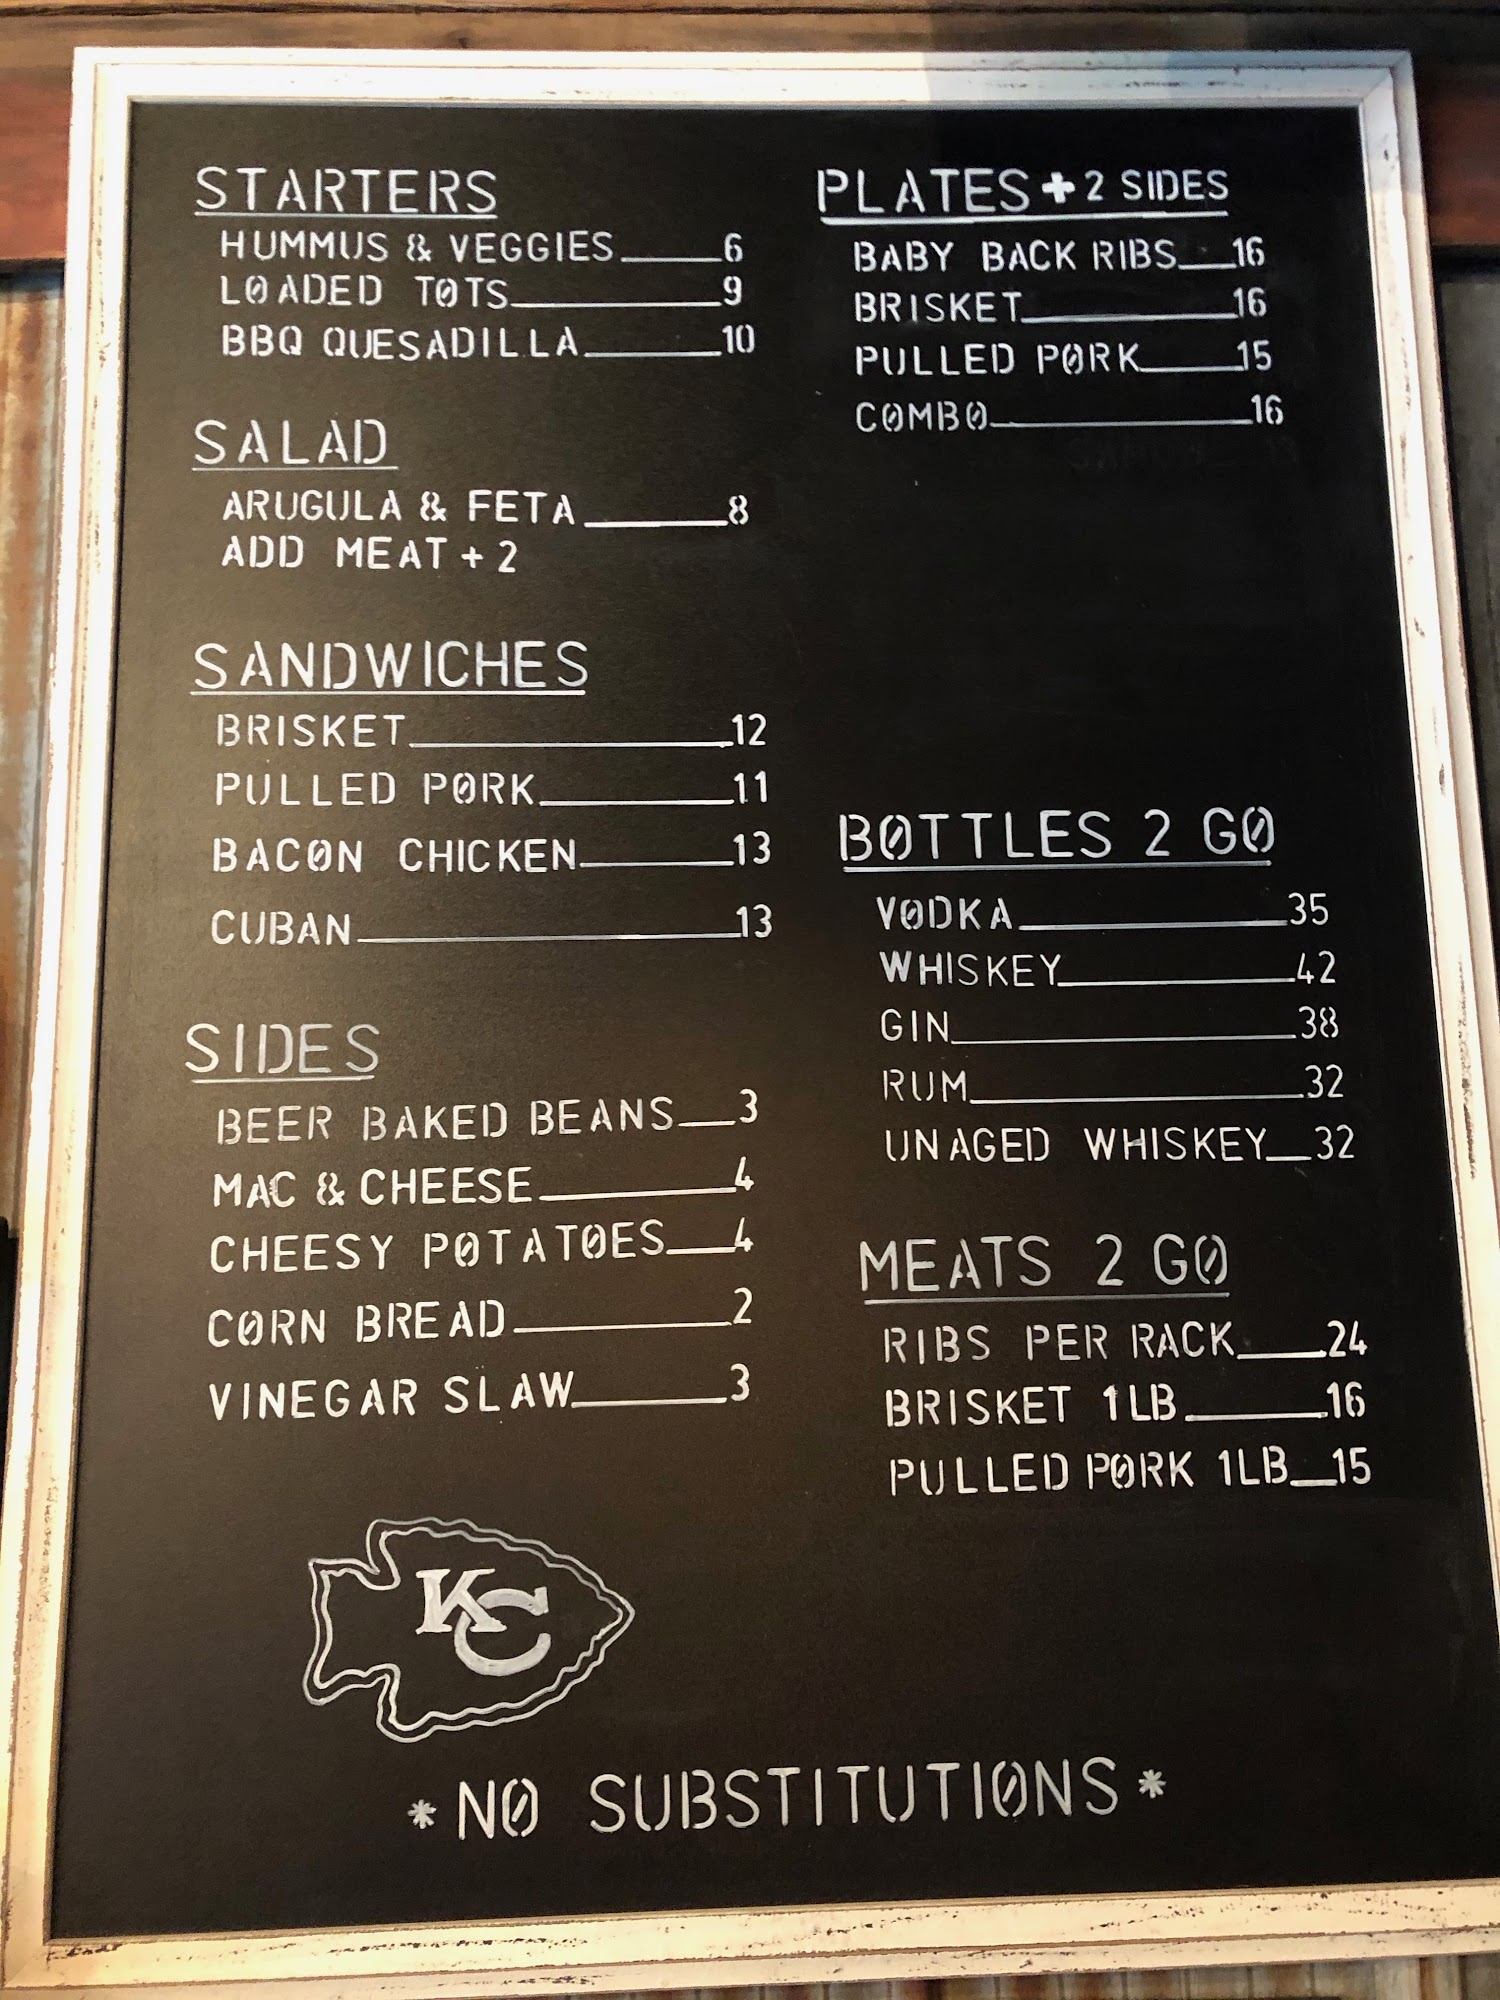 STARTERS
HUMMUS & VEGGIES 6
LOADED TOTS 9
BBQ QUESADILLA 10
SALAD
ARUGULA & FETA 8
ADD MEAT + 2
SANDWICHES
BRISKET 12
PULLED PORK 11
BACON CHICKEN 13
CUBAN 13
SIDES
BEER BAKED BEANS 3
MAC & CHEESE 4
CHEESY POTATOES 4
CORN BREAD 2
VINEGAR SLAW 3
KC
PLATES + 2 SIDES
BABY BACK RIBS 16
BRISKET 16
PULLED PORK 15
COMBO 16
BOTTLES 2 GO
VODKA 35
WHISKEY 42
GIN 38
RUM 32
UNAGED WHISKEY 32
MEATS 2 GO
RIBS PER RACK 24
BRISKET 1LB 16
PULLED PORK 1LB 15
* NO SUBSTITUTIONS *